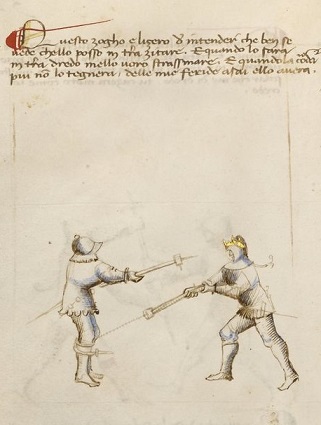 Questo zogho e ligero d intender che ben se
vede chello posso in tra zitare. E quando lo faro
in tra dredo mello voro strassinare. E quando la coda
piu no lo tegnera, delle mie feride asai ello avera.